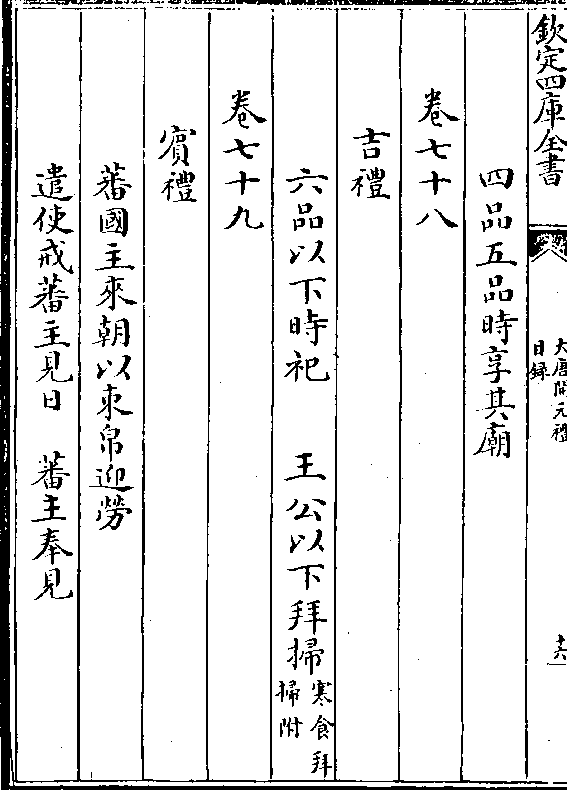 欽定四庫全書
大唐開元禮
目録
十六
四品五品時享其廟
卷七十八
吉禮
六品以下時祀　王公以下拜掃寒食拜掃附
卷七十九
賓禮
蕃國主來朝以束帛迎勞
遣使戒蕃主見日　蕃主奉見